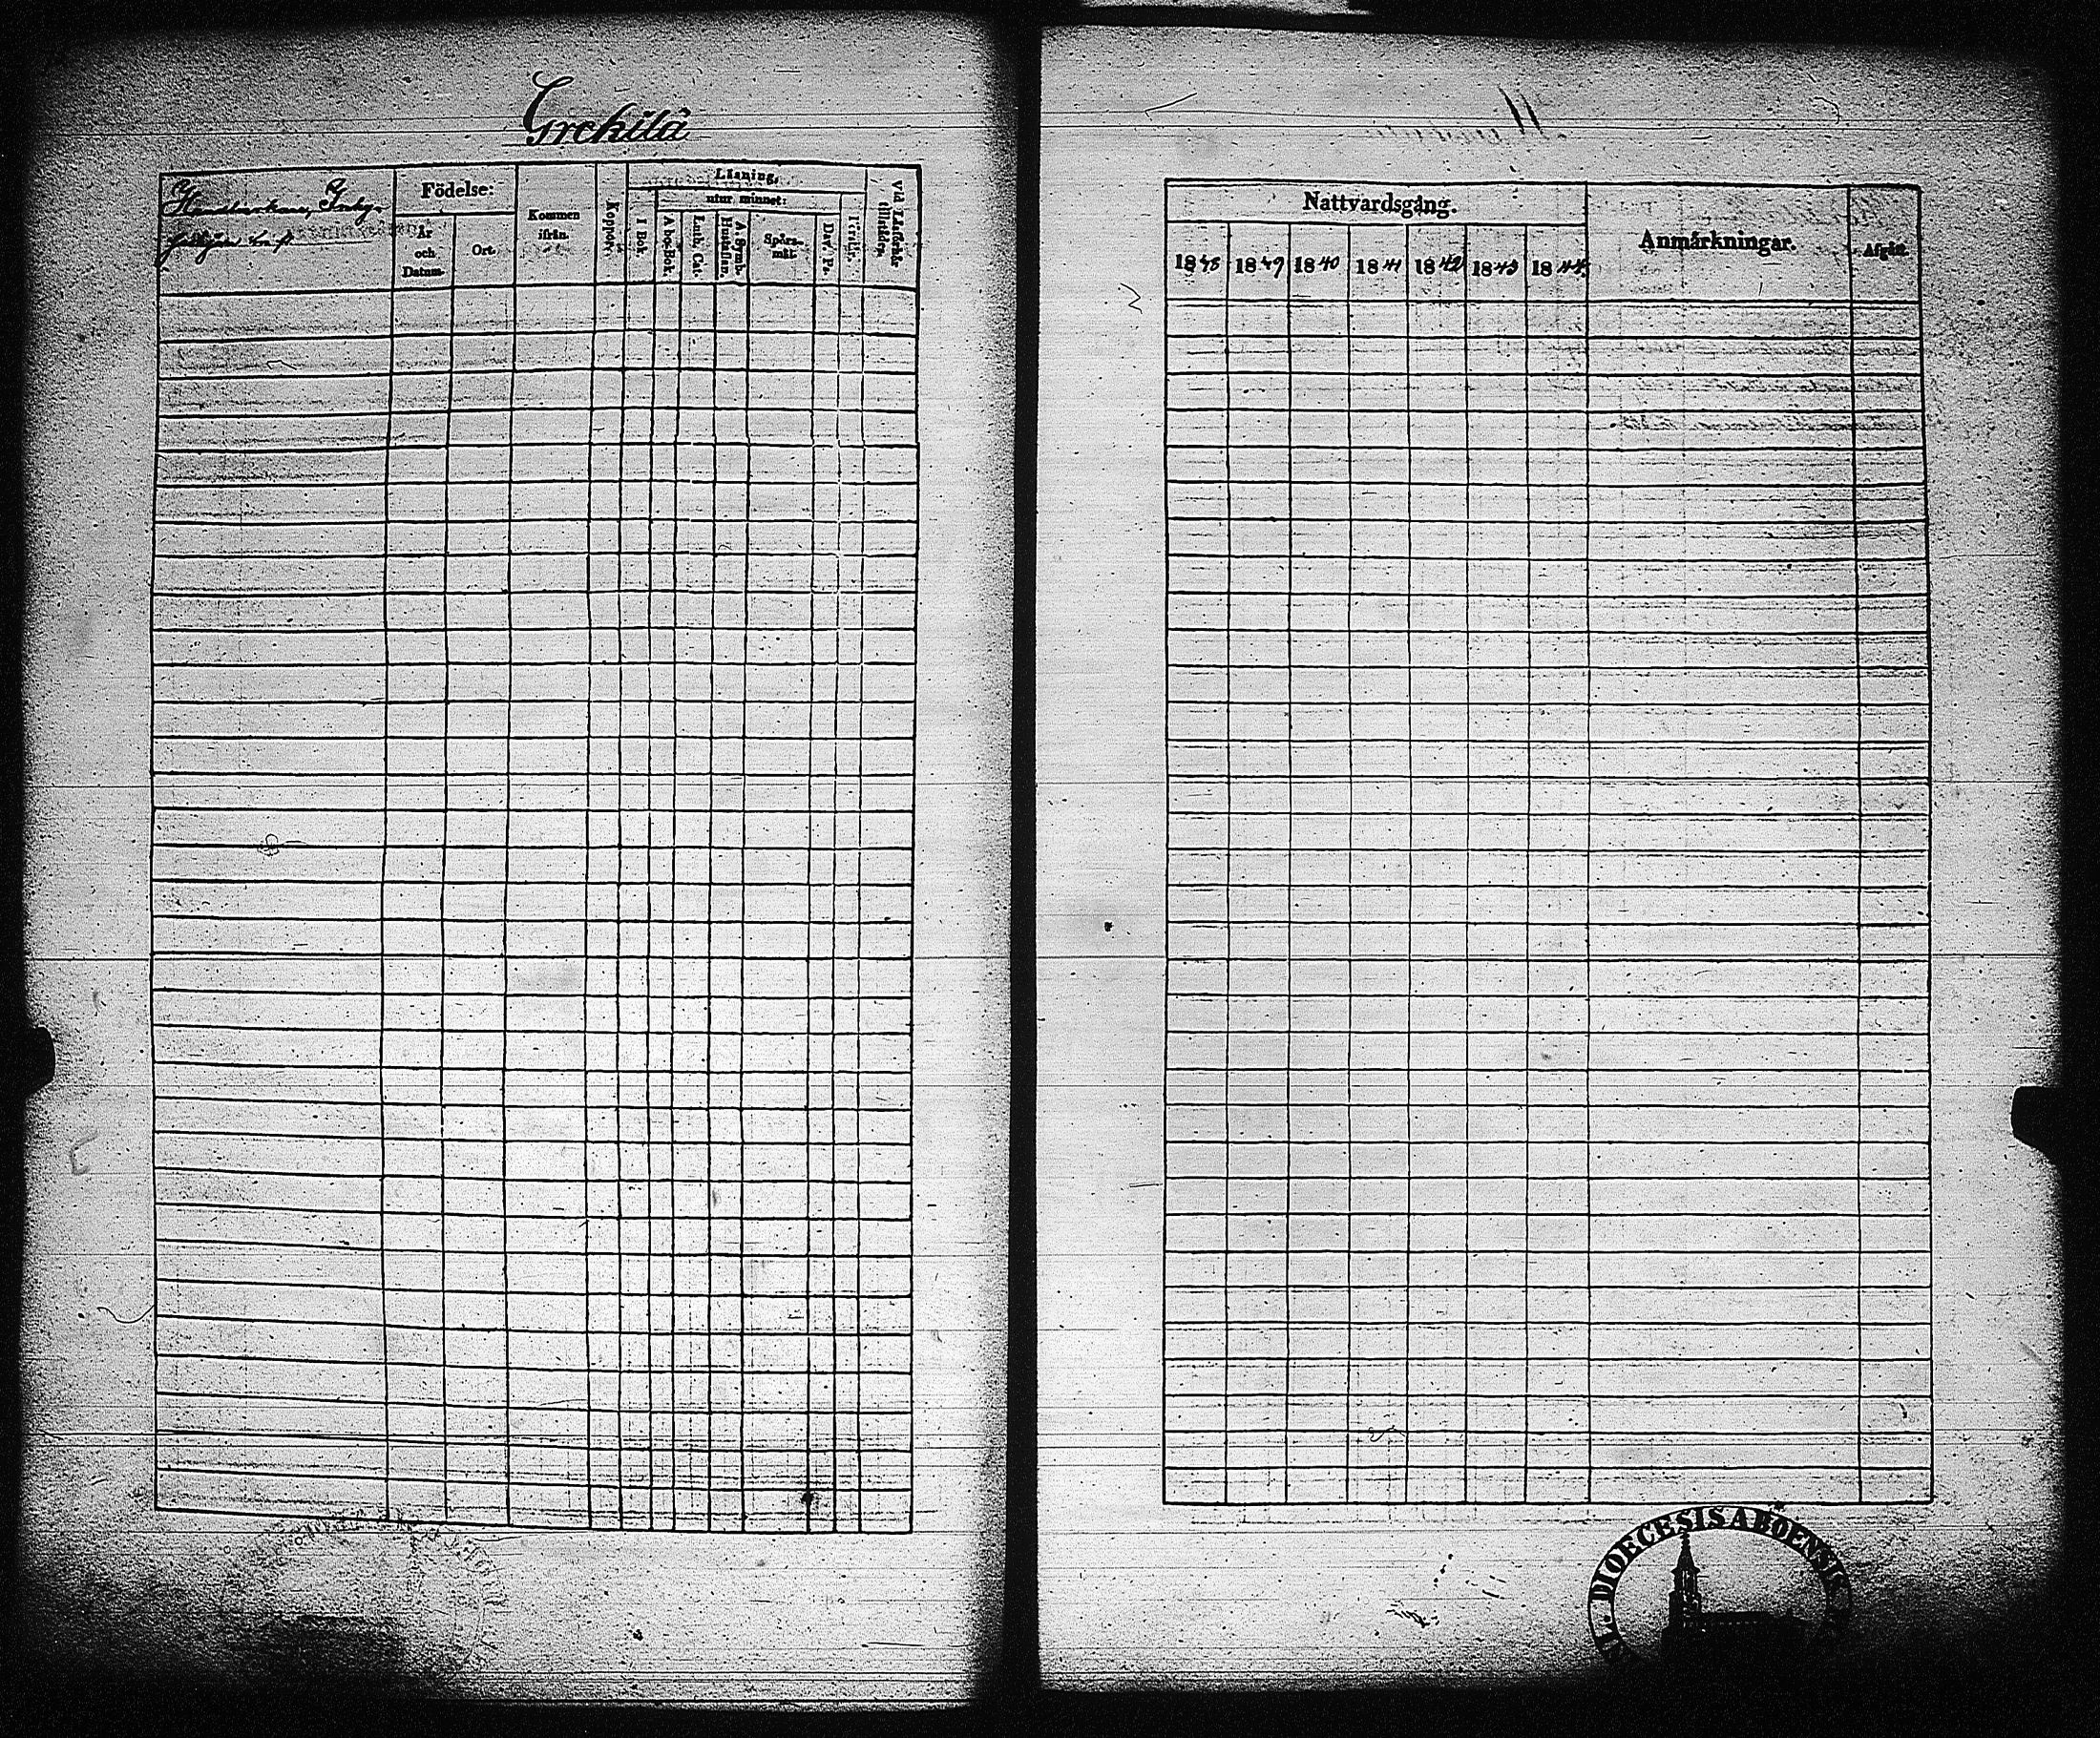 Grekilä
Födelse:
År
och
Datum.
Ort.
Kommen
ifrån.
Koppor.
Läsning,
utur minnet:
I Bok.
A bo-Bok.
Luth. Cat.
A. Symb.
Hustaflan.
Spörs-
mål.
Dav. Ps.
Förstår.
Vid Läseförhör
tillstädes.
Nattvardsgång.
1838
1839
1840
1841
1842
1843
1844.
Anmärkningar.
Afgått.
DIOECESIS ABOENSIS